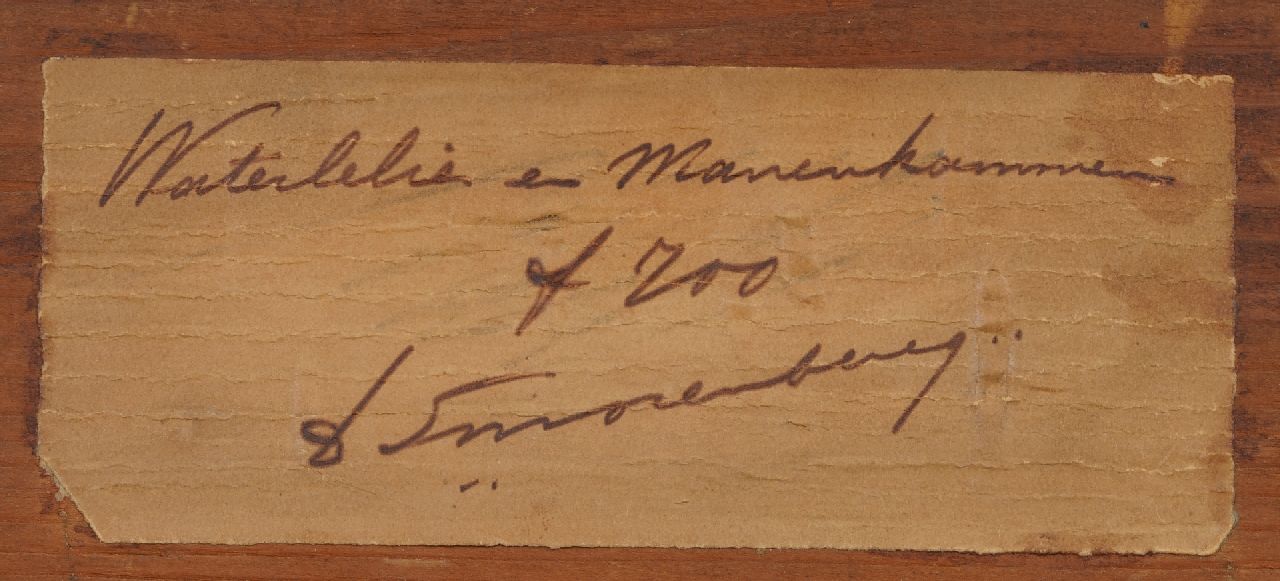 Waterlelie en Manenkammen
f 200
D Smorenberg..